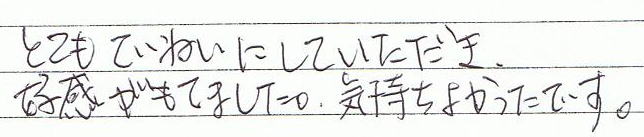 とてもていねいにしていただき、
好感がもてました。気持ちよかったです。